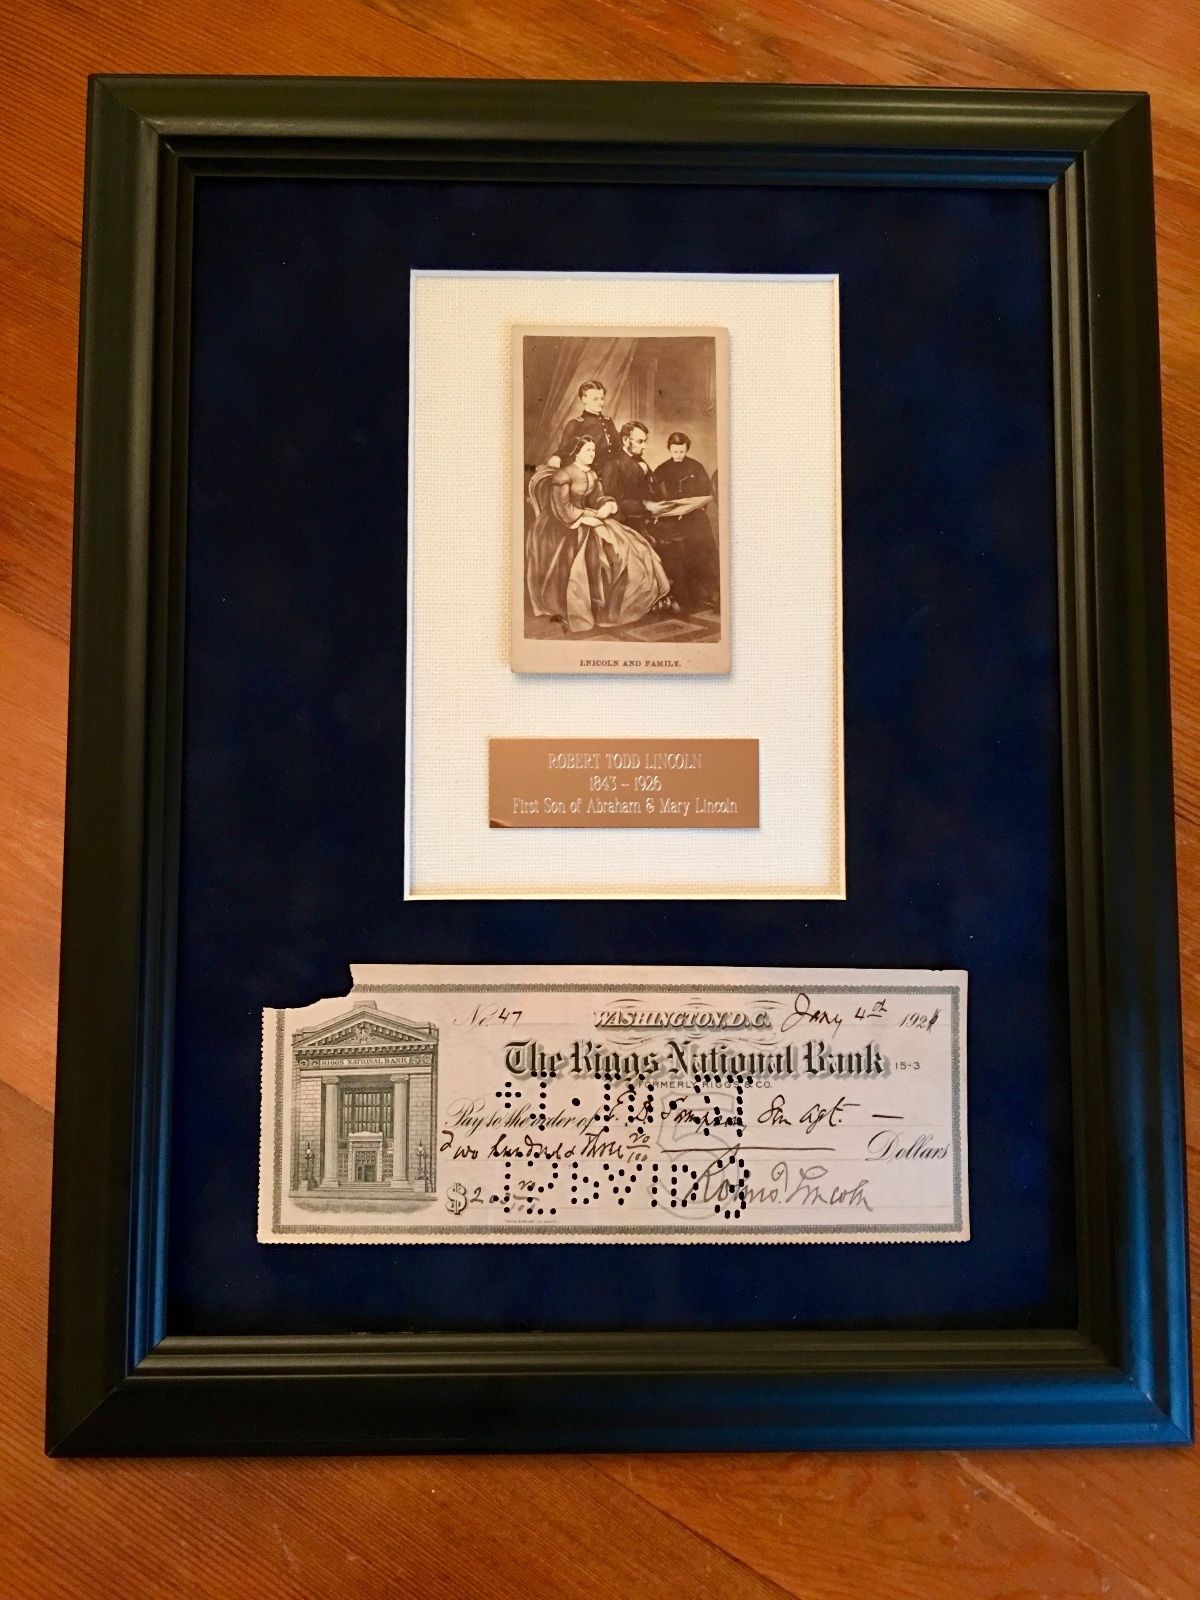 LNICOLN AND FAMILY.
ROBERT TODD LINCOLN
1843 - 1926
First Son of Abraham & Mary Lincoln
No. 47 WASHINGTON, D.C. Jany 4th 1921
RIGGS NATIONAL BANK
The Riggs National Bank 15-3
FORMERLY RIGGS & CO.
Pay to the order of Gen Agt.
Two hundred & three 70/100 Dollars
$ Robt T. Lincoln